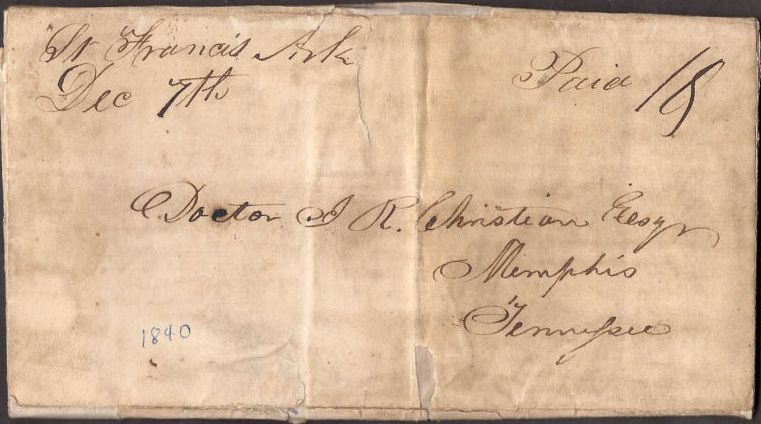 St Francis Ark
Dec 7th
Paid
Doctor J R. Christian Esqr
Memphis
Tennessee
1840